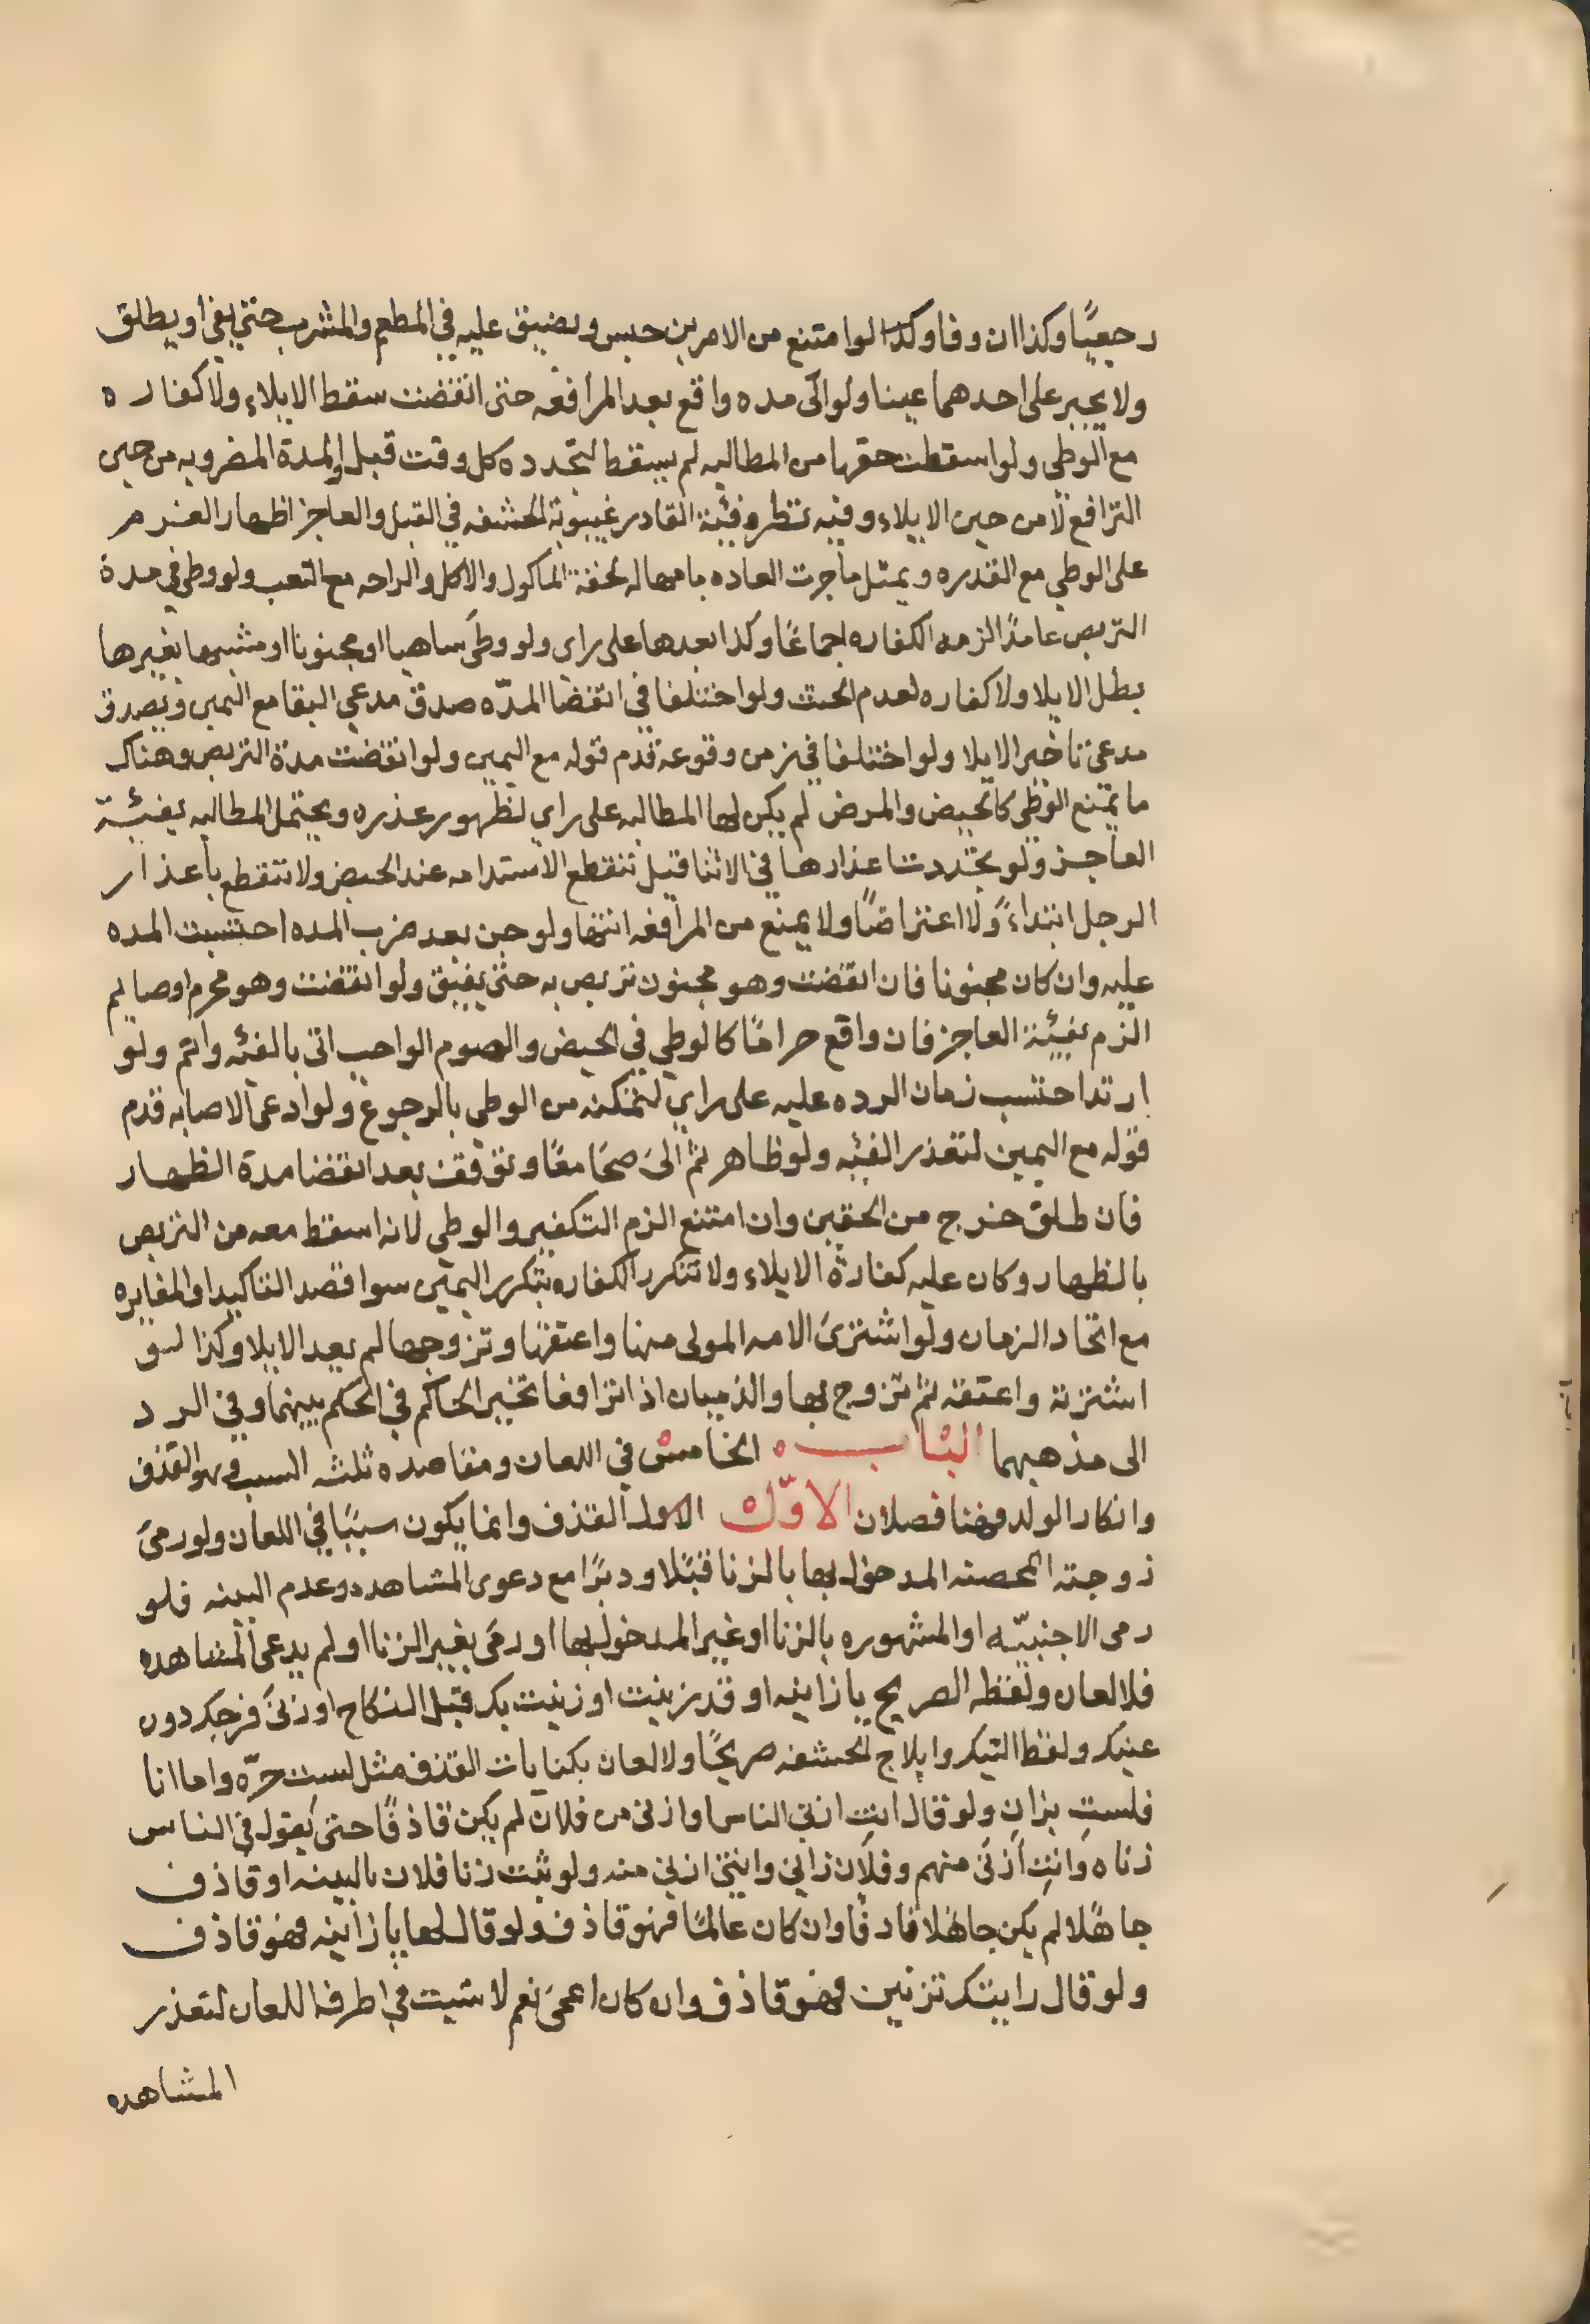 رجعيًا وكذا ان وفا وكذا لوامتنع من الامرين حبس وبضيق عليه في المطعم والمشرب حتى يفى او يطلق
ولا يجبر على احدهما عينا ولو الى مده واقع بعد المرافعه حتى انقضت سقط الايلاء ولا كفاره
مع الوطي ولو اسقطت حقها من المطالبه لم يسقط لتجدده كل وقت قبل والمدة المضروبه من حين
الترافع لا من حين الايلاء وفيه نظر وفئة القادر غيبوبة الحشفه في القبل والعاجز اظهار العزم
على الوطي مع القدره ويمثل ما جرت العاده بامهاله لخفة الماكول والاكل والراحه مع التعب ولو وطى في مدة
التربص عامدًا لزمه الكفاره اجماعًا وكذا بعدها على راي ولو وطى ساهيا او مجنونا او مشبها بغيرها
بطل الايلا ولا كفاره لعدم الحنث ولو اختلفا في انقضا المدّه صدق مدعى البقا مع اليمين ويصدق
مدعى تاخير الايلا ولو اختلفا في زمن وقوعه قدم قوله مع اليمين ولو انقضت مدة التربص وهناك
ما يمنع الوطى كالحيض والمرض لم يكن لها المطالبه على راي لظهور عذره ويحتمل المطالبه بفيئة
العاجز ولو تجددت اعذارها في الاثنا قيل تنقطع الاستدامه عند الحيض ولا تنقطع باعذار
الرجل ابتداءً ولا اعتراضًا ولا يمنع من المرافعه انتها ولو جن بعد ضرب المده احتسبت المده
عليه وان كان مجنونا فان انقضت وهو مجنون تربص به حتى يفيق ولو انقضت وهو محرم او صايم
الزم بفيئة العاجز فان واقع حرامًا كالوطي في الحيض والصوم الواجب اتى بالفئه واثم ولو
ارتد احتسب زمان الرده عليه على راي لتمكنه من الوطي بالرجوع ولو ادعى الاصابه قدم
قوله مع اليمين لتعذر الفئه ولو ظاهر ثم الى صحا معًا وتوقف بعد انقضا مدة الظهار
فان طلق خرج من الحقين وان امتنع الزم التكفير والوطي لانه اسقط معه من التربص
بالظهار وكان عليه كفارة الايلاء ولا تتكرر الكفاره بتكرر اليمين سوا قصد التاكيد او المغايره
مع اتحاد الزمان ولو اشترى الامه المولى منها واعتقها وتزوجها لم يعد الايلا وكذا لو
اشترته واعتقته ثم تزوج بها والذميان اذا ترافعا تخير الحاكم في الحكم بينهما وفي الرد
الى مذهبهما الباب الخامس في اللعان ومقاصده ثلثه السبب وهو القذف
وانكار الولد فهنا فصلان الاوّل الاول القذف وانما يكون سببًا في اللعان ولو رمى
زوجته المحصنه المدخول بها بالزنا قبلا ودبرًا مع دعوى المشاهده وعدم البينه فلو
رمى الاجنبيّه او المشهوره بالزنا او غير المدخول بها او رمى بغير الزنا او لم يدعى المشاهده
فلا لعان ولفظه الصريح يا زانيه او قد زنيت او زنيت بك قبل النكاح او زنى فرجك دون
عينك ولفظ النيك وايلاج الحشفه صريحًا ولا لعان بكنايات القذف مثل لست حرّه واما انا
فلست بزانٍ ولو قال انتِ ازنى الناس او ازنى من فلان لم يكن قاذفًا حتى يقول في الناس
زناه وانتِ ازنى منهم وفلان زاني وانتى ازنى منه ولو ثبت زنا فلان بالبينه او قاذف
جاهلا لم يكن جاهلا قاذفًا وان كان عالمًا فهو قاذف ولو قال لها يا زانيه فهو قاذف
ولو قال رايتك تزنين فهو قاذف وان كان اعمى نعم لا يثبت في طرفه اللعان لتعذر
المشاهده